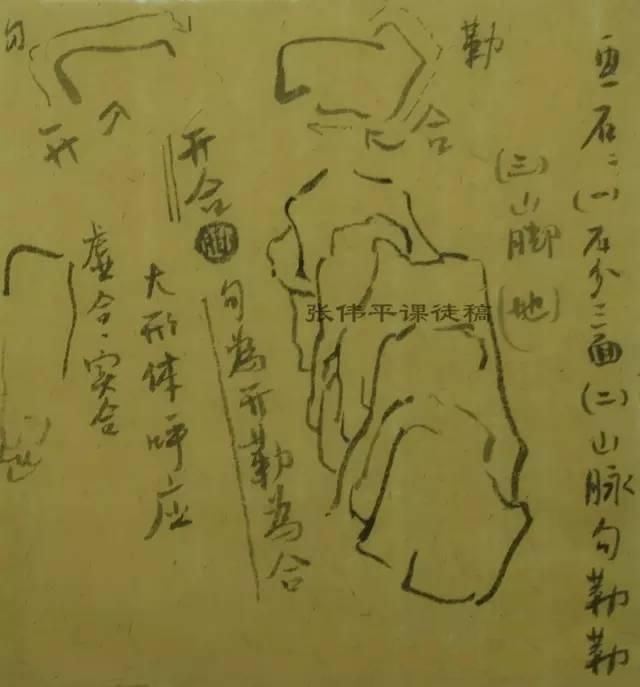 画石：(一)石分三面(二)山脉句勒勒
(三)山脚(地)
勒
合
匕
张伟平课徒稿
句為开勒為合
开合
大形体呼应
虚合·实合
开
勾